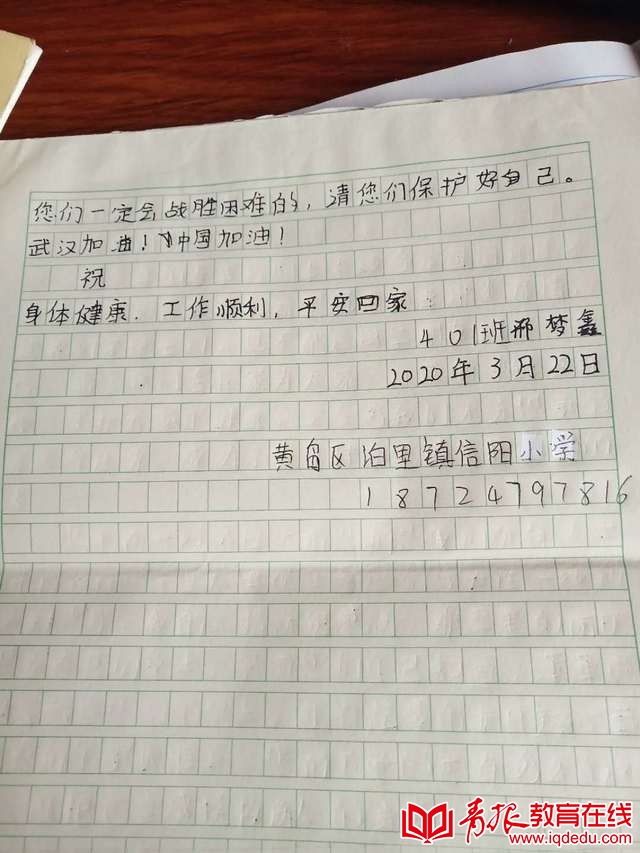 您们一定会战胜困难的，请您们保护好自己。
武汉加油！中国加油！
祝
身体健康．工作顺利，平安回家
401班邢梦鑫
2020年3月22日
黄岛区泊里镇信阳小学
18724797816
青报教育在线
www.iqdedu.com